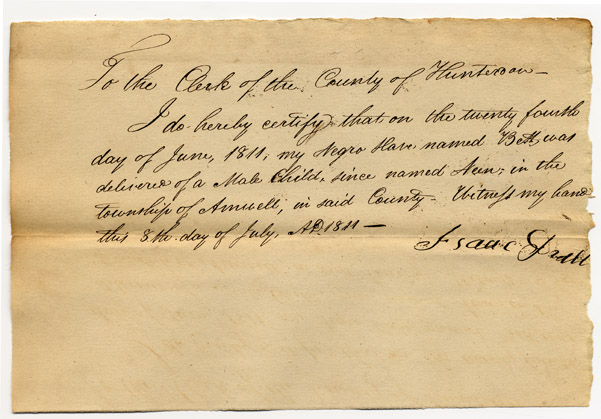 To the Clerk of the County of Hunterdon —
I do hereby certify that on the twenty fourth
day of June, 1811, my Negro slave named Beth was
delivered of a Male Child, since named in the
township of Amwell, in said County — Witness my hand
this 8th day of July, AD. 1811 —
Isaac